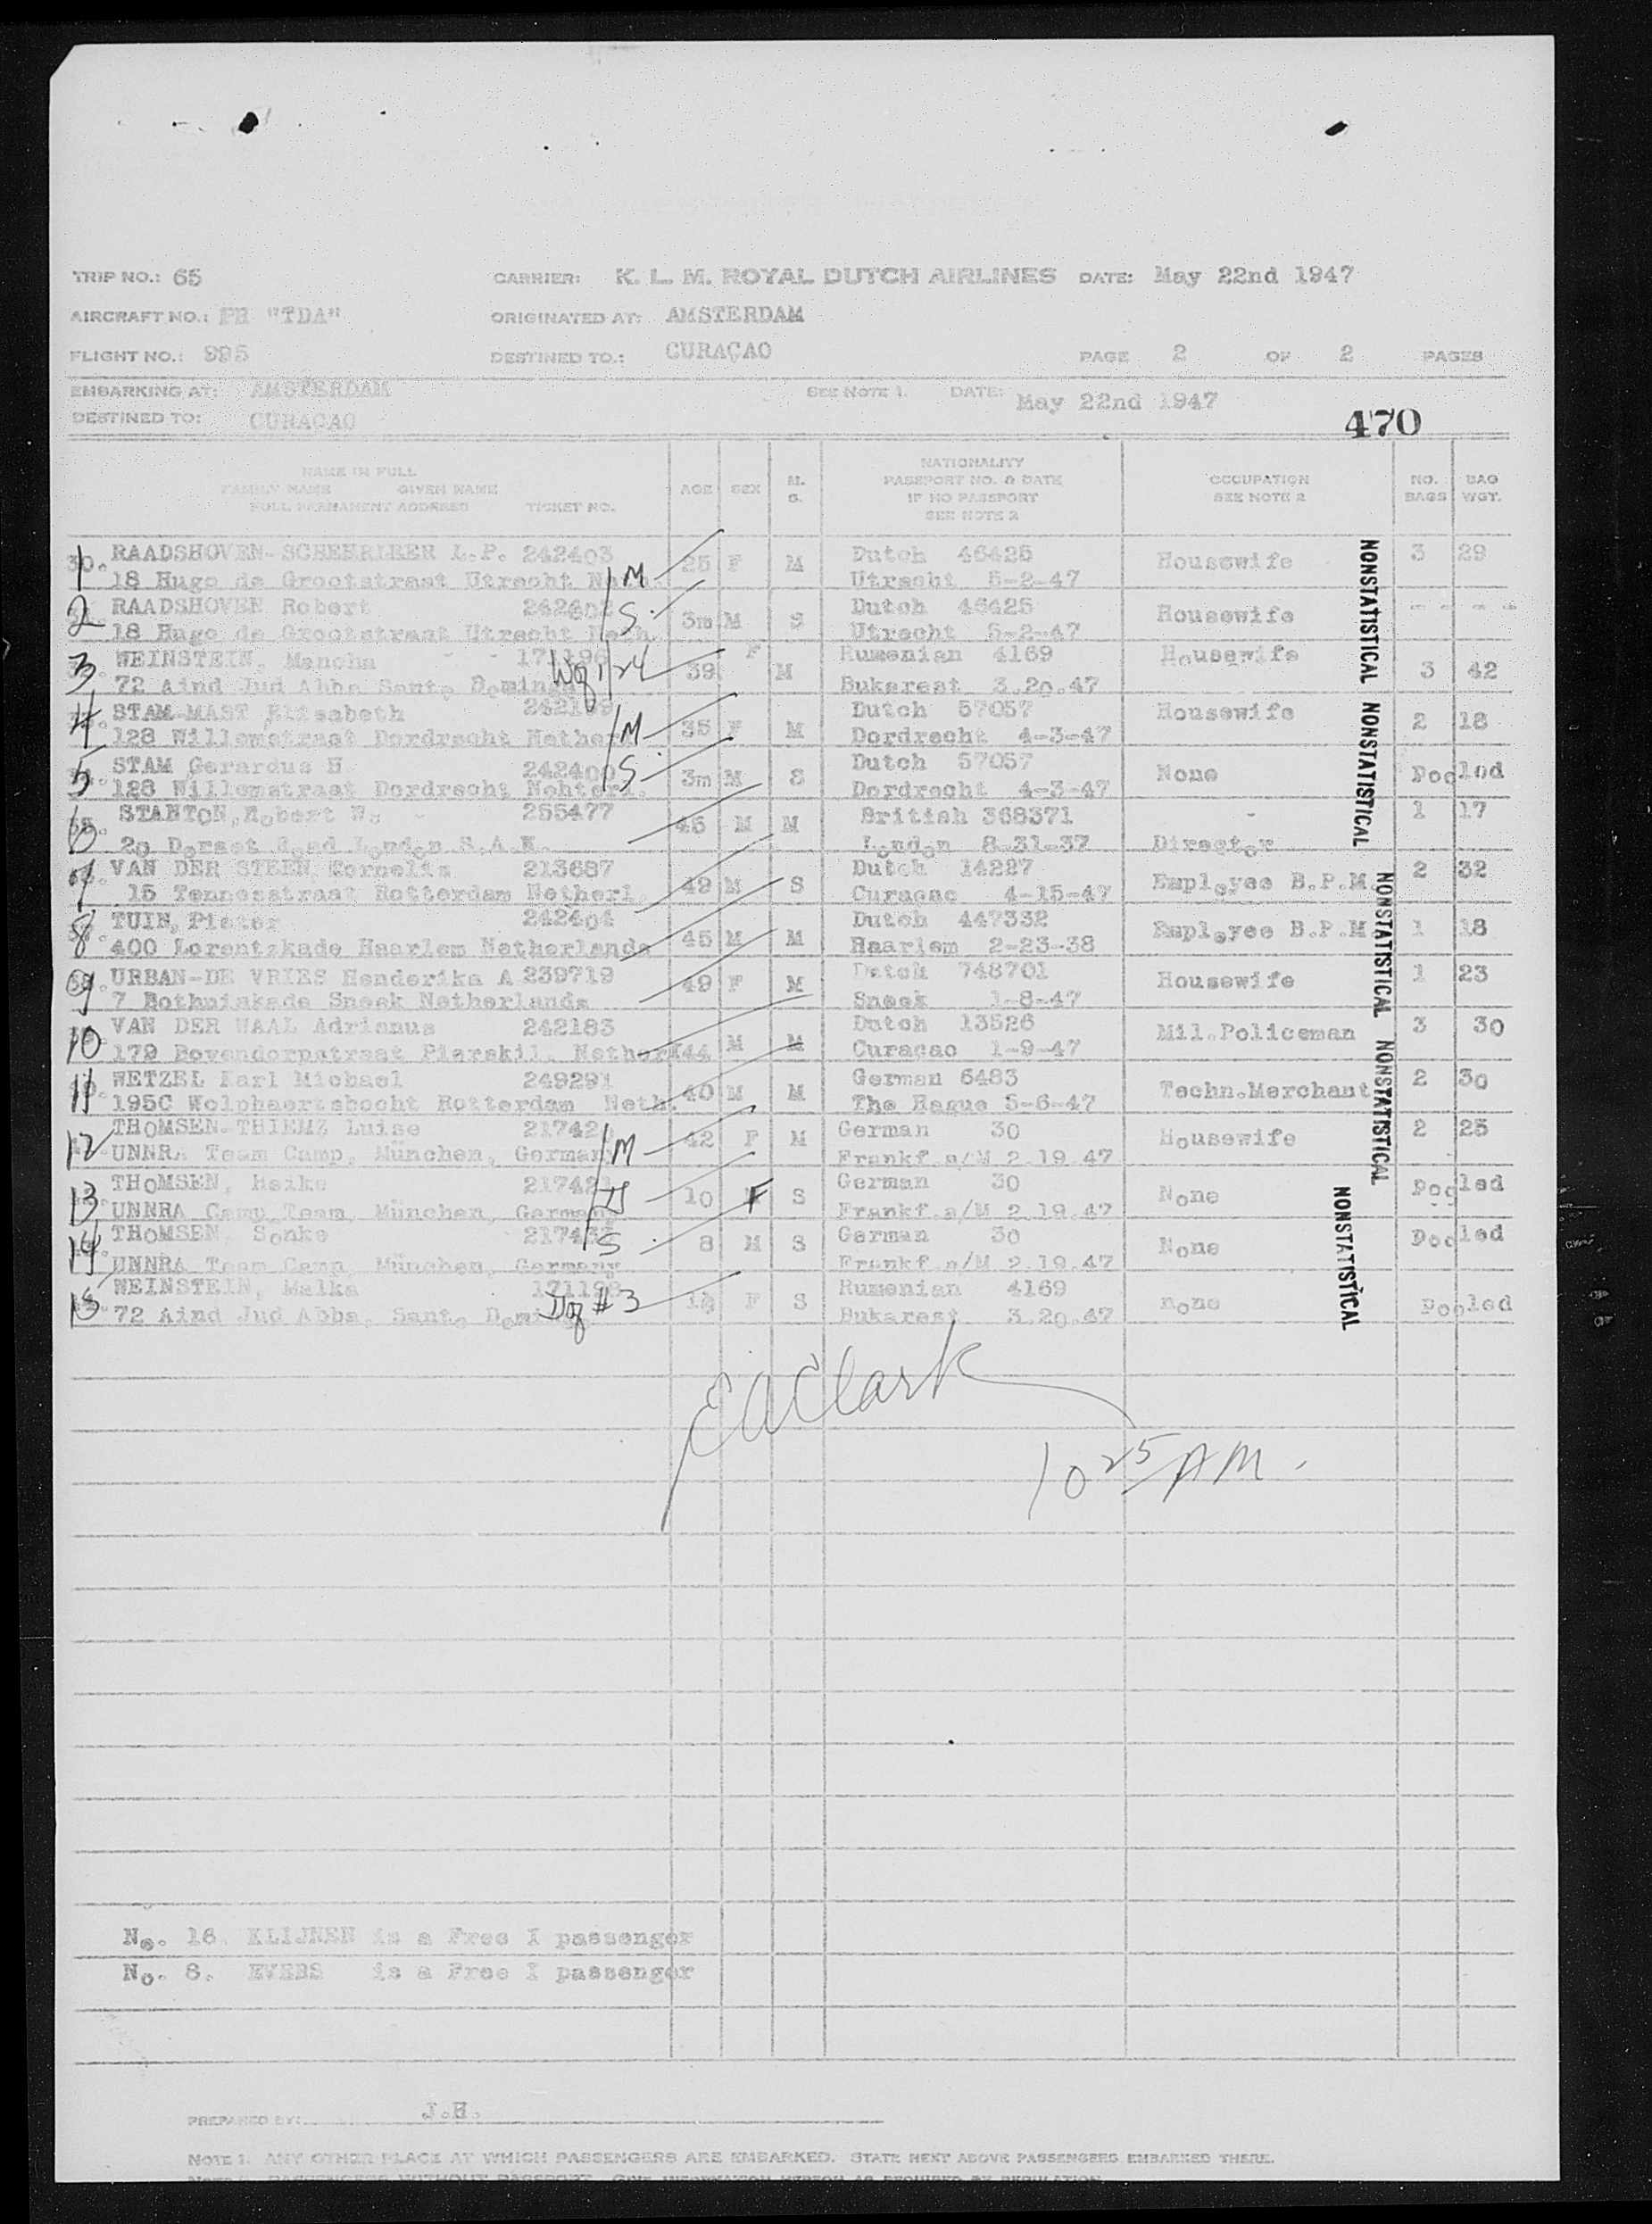 TRIP NO.: 65 CARRIER: K. L. M. ROYAL DUTCH AIRLINES DATE: May 22nd 1947
AIRCRAFT NO.: PH "TDA" ORIGINATED AT: AMSTERDAM
FLIGHT NO.: 995 DESTINED TO.: CURAÇAO PAGE 2 OF 2 PAGES
EMBARKING AT: AMSTERDAM SEE NOTE 1. DATE: May 22nd 1947
DESTINED TO: CURACAO 470
NAME IN FULL
FAMILY NAME GIVEN NAME
FULL PERMANENT ADDRESS TICKET NO.
AGE SEX M. S.
NATIONALITY
PASSPORT NO. & DATE
IF NO PASSPORT
SEE NOTE 2
OCCUPATION
SEE NOTE 2
NO. BAGS BAG WGT.
1 30. RAADSHOVEN- L.P. 242403 25 F M Dutch 46425 Housewife 3 29
18 Hugo de Grootstraat Utrecht M Utrecht 5-2-47
2 RAADSHOVEN Robert 3m M S Dutch 46425 Housewife - - - -
18 Hugo de Grootstraat Utrecht Neth. S Utrecht 5-2-47
3 WEINSTEIN, Mancha - - 171196 39 F M Rumenian 4169 Housewife 3 42
72 Aind Jud Abba Santo Domingo Bukarest 3.20.47
4 STAM-MAST Elisabeth 35 F M Dutch 57057 Housewife 2 18
128 Willemstraat Dordrecht M Dordrecht 4-3-47
5 STAM Gerardus H 242400 3m M S Dutch 57057 None Pooled
128 Willemstraat Dordrecht S Dordrecht 4-3-47
6 STANTON, Robert W. - 255477 45 M M British 368371 - 1 17
20 Dorset Road London S.A.E. London 8-31-37 Director
7 VAN DER STEEN Cornelis 213687 49 M S Dutch 14227 Employee B.P.M. 2 32
15 Tennesstraat Rotterdam Netherl. Curacao 4-15-47
8 TUIN, Pieter 242404 45 M M Dutch 447332 Employee B.P.M. 1 18
400 Lorentzkade Haarlem Netherlands Haarlem 2-23-38
9 URBAN-DE VRIES Henderika A 239719 49 F M Dutch 748701 Housewife 1 23
7 Bothniakade Sneek Netherlands Sneek 1-8-47
10 VAN DER WAAL Adrianus 242183 44 M M Dutch 13526 Mil.Policeman 3 30
179 Curacao 1-9-47
11 WETZEL Karl Michael 249291 40 M M German 6483 Techn.Merchant 2 30
195C Wolphaertsbocht Rotterdam Neth. The Hague 5-6-47
12 THOMSEN-THIEMZ Luise 42 F M German 30 Housewife 2 25
UNNRA Team Camp, München, Germany M Frankf.a/M 2.19.47
13 THOMSEN, Heike 10 F S German 30 None Pooled
UNNRA Camp Team, München, Germany Frankf.a/M 2.19.47
14 THOMSEN, Sonke 8 M S German 30 None Pooled
UNNRA Team Camp, München, Germany S Frankf.a/M 2.19.47
15 WEINSTEIN, Malka F S Rumenian 4169 none Pooled
72 Aind Jud Abba, Santo #3 Bukarest 3.20.47
NONSTATISTICAL
NONSTATISTICAL
NONSTATISTICAL
NONSTATISTICAL
NONSTATISTICAL
E A Clark
10 25 AM.
No. 16. KLIJNEN is a Free I passenger
No. 8. EVERS is a Free I passenger
PREPARED BY: J.H.
NOTE 1. ANY OTHER PLACE AT WHICH PASSENGERS ARE EMBARKED. STATE NEXT ABOVE PASSENGERS EMBARKED THERE.